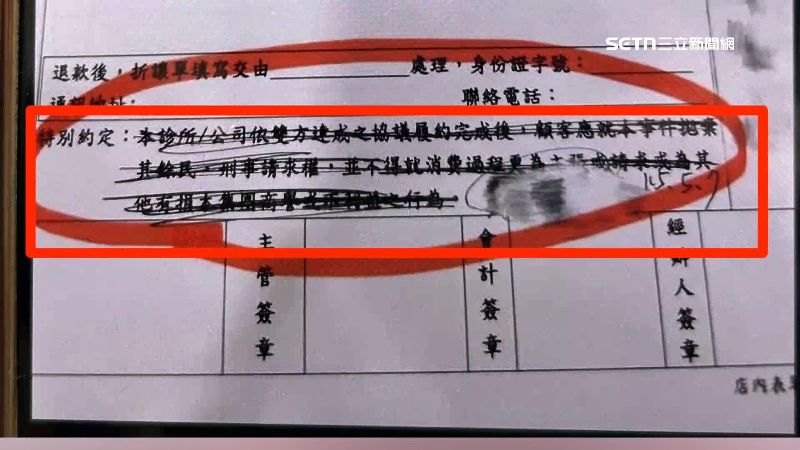 SETN三立新聞網
退款後，折讓單填寫交由＿＿＿＿＿＿＿＿處理，身份證字號：＿＿＿＿＿＿
聯絡電話：
特別約定：本診所/公司依雙方達成之協議履約完成後，顧客應就本事件拋棄
其餘民、刑事請求權，並不得就消費過程更為主張或請求或為其
他有損本集團商譽
行為
主管簽章
會計簽章
經辦人簽章
店內表